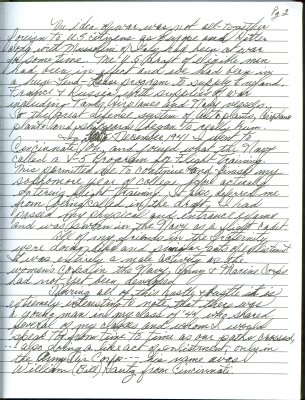 Pg 2
The idea of war was not all together
foreign to U.S. citizens as Europe and Hitler
along with Mussolini of Italy had been at war
for some time. The U.S. draft of eligible men
had been in effect and we had been in a
Lend-Lease program to supply England,
France & Russia with supplies of war
including Tanks, Airplanes and Navy vessels.
So the great defense system of auto plants, airplane
plants and shipyards began to really hum.
December 1941 I went to
Cincinnati, Oh. and joined what the Navy
called a V-5 Program for Flight training.
This permitted me to continue and finish my
sophomore year of college before actually
entering flight training. It also deferred me
from being called in the draft. I had
passed my physical and entrance exams
and was sworn in the Navy as a flight cadet.
Many of my friends in the fraternity
were doing the same kind of enlistment.
It was entirely a male activity as the
womens Corps in the Navy, Army & Marine Corps
had not yet been developed.
During all of this hustle & bustle it is
extremely interesting to note that there was
a young man in my class of '44 who shared
several of my classes and whom I would
speak to from time to time as our paths crossed,
also doing a like act of enlistment, only in
the Army Air Corps --- his name was
William (Bill) from Cincinnati.